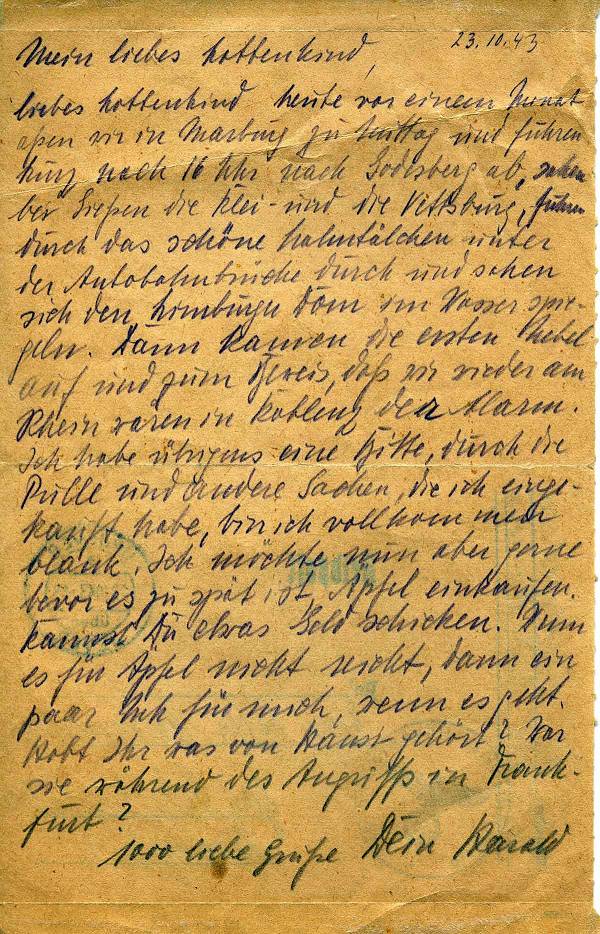 23.10.43
Mein liebes Hottenkind,
liebes Hottenkind heute vor einem Monat
aßen wir in Marburg zu Mittag und fuhren
kurz nach 16 Uhr nach Godesberg ab, sahen
bei Gießen die Klei- und die Vettsburg, fuhren
durch das schöne Lahntälchen unter
der Autobahnbrücke durch und sahen
sich den Limburger Dom im Wasser spie-
geln. Dann kamen die ersten Nebel
auf und zum Beweis, daß wir wieder am
Rhein waren in Koblenz der Alarm.
Ich habe übrigens eine Bitte, durch die
und andere Sachen, die ich einge-
kauft habe, bin ich vollkommen
blank. Ich möchte nun aber gerne
bevor es zu spät ist, Äpfel einkaufen.
Kannst Du etwas Geld schicken. Wenn
es für Äpfel nicht reicht, dann ein
paar für mich, wenn es geht.
Habt Ihr was von gehört? War
sie während des Angriffs in Frank-
furt?
1000 liebe Grüße Dein Harald